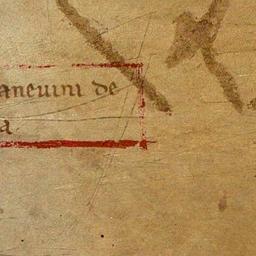 aneuini de
a